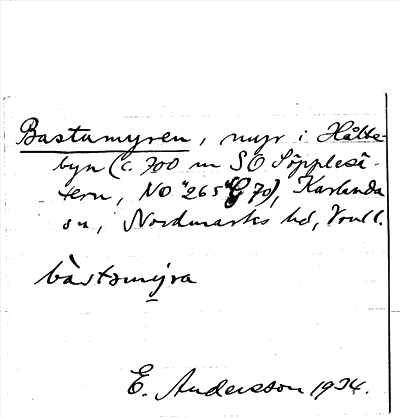 Bastumyren, myr i Hålte-
byn (c. 700 m SO Söpplesä-
tern, NO "265" G 70), Karlanda
sn, Nordmarks hd, Vrml.
bàstsmy̲ra
E. Andersson 1934.